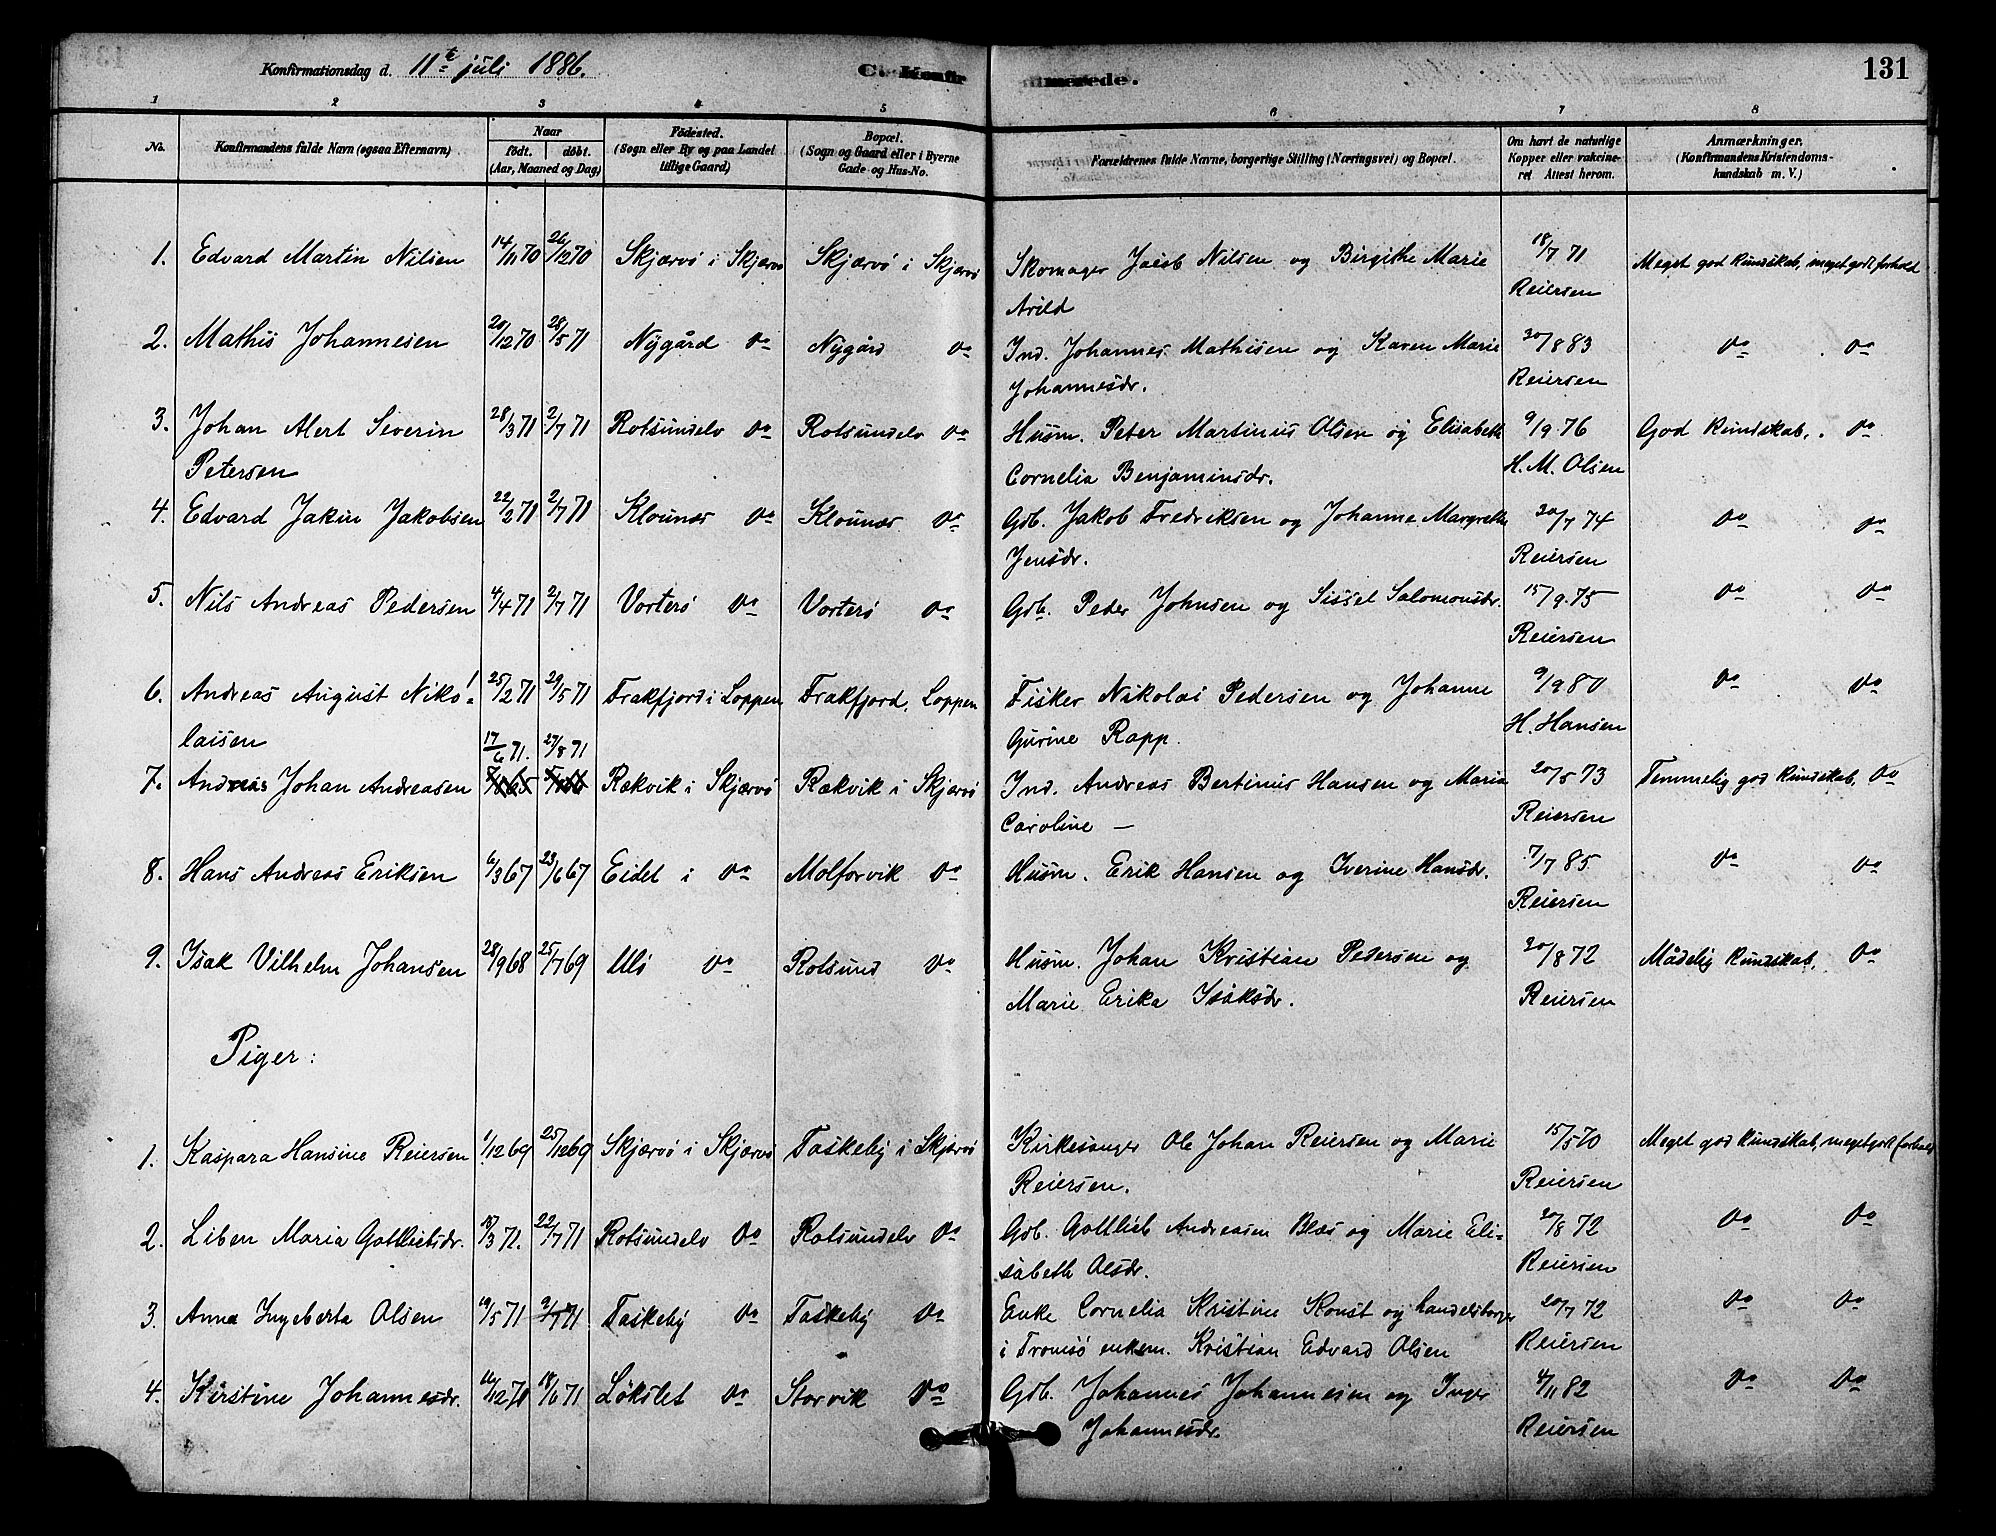 Konfirmationsdag d. 11te juli 1886.
C. Konfirmerede.
131
1 2 3 4 5 6 7 8
No. Konfirmandens fulde Navn (ogsaa Efternavn) Naar født. døbt. (Aar, Maaned og Dag) Fødested. (Sogn eller By og paa Landet tillige Gaard) Bopæl. (Sogn og Gaard eller i Byerne Gade og Hus-No. Forældrenes fulde Navne, borgerlige Stilling (Næringsvei) og Bopæl. Om havt de naturlige Kopper eller vaccineret Attest herom. Anmærkninger. (Konfirmandens Kristendomskundskab m. V.)
1. Edvard Martin Nilsen 14/11 70 26/12 70 Skjærvö i Skjærvö Skjærvö i Skjærvö Skomager Jacob Nilsen og Birgithe Marie 18/7 71 Meget god kundskab, meget godt forhold
Arild Reiersen
2. Mathis Johannesen 20/12 70 28/5 71 Nygård do Nygård do Ind. Johannes Mathisen og Karen Marie 30/8 83 do do
Johannesdr. Reiersen
3. Johan Alert Severin 28/3 71 2/7 71 Rotsundelv do Rotsundelv do Husm. Peter Martinius Olsen og Elisabeth 9/9 76 God kundskab, do
Petersen Cornelia Benjaminsdr. H. M. Olsen
4. Edvard Jakob Jakobsen 22/2 71 2/7 71 Klounæs do Klounæs do Gdb. Jakob Fredriksen og Johanne Margrethe 20/7 74 do do
Jensdr. Reiersen
5. Nils Andreas Pedersen 4/4 71 2/7 71 Vorterö do Vorterö do Gdb. Peder Johnsen og Sissel Salomonsdr. 15/9 75 do do
Reiersen
6. Andreas August Niko- 25/2 71 29/5 71 Frakfjord i Loppen Frakfjord, Loppen Fisker Nikolai Pedersen og Johanne 9/9 80 do do
laisen Gurine Rapp. H. Hansen
17/6 71. 27/8 71
7. Andreas Johan Andreasen Rækvik i Skjærvö Rækvik i Skjærvö Ind. Andreas Bertinus Hansen og Maria 20/5 73 Temmelig god kundskab, do
Caroline — Reiersen
8. Hans Andreas Eriksen 6/3 67 23/6 67 Eidet i do Molforvik do Husm. Erik Hansen og Iverine Hansdr. 7/7 85 do do
Reiersen
9. Isak Vilhelm Johansen 28/9 68 25/7 69 Ulö do Rotsund do Husm. Johan Kristian Pedersen og 20/8 72 Mådelig kundskab, do
Marie Erika Isaksdr. Reiersen
Piger:
1. Kaspara Hansine Reiersen 1/12 69 25/12 69 Skjærvö i Skjærvö Taskeby i Skjærvö Kirkesanger Ole Johan Reiersen og Marie 15/5 70 Meget god kundskab, meget godt forhold
Reiersen. Reiersen
2. Liben Maria Gottliebsdr. 18/3 71. 22/7 71 Rotsundelv do Rotsundelv do Gdb. Gottlieb Andreasen Blæs og Marie Eli- 20/8 72 do do
sabeth Olsdr. Reiersen
3. Anna Ingeberta Olsen 19/5 71 2/7 71 Taskeby do Taskeby do Enke Cornelia Kristine Konst og handelsborger 20/7 72 do do
i Tromsö enkem. Kristian Edvard Olsen Reiersen
4. Kirstine Johannesdr. 16/12 70 18/6 71 Lökslet do Storvik do Gdb. Johannes Johannesen og Inger 4/11 82 do do
Johannesdr. Reiersen